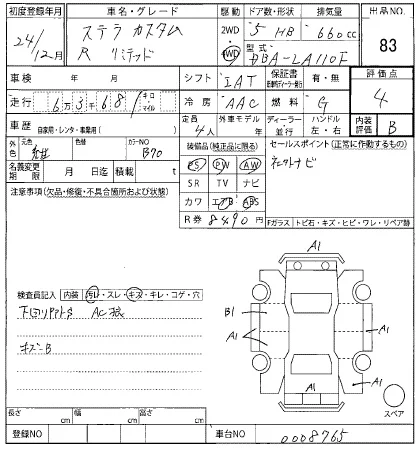 初度登録年月 車名・グレード 駆動 ドア数・形状 排気量 出品NO.
24/12月 ステラ カスタム R リミテッド 2WD 4WD 5 HB 660cc 83
型式 DBA-LA110F
車検 年 月 シフト IAT 保証書 有・無 評価点
走行 6万3千681 キロ・マイル 冷房 AAC 燃料 G 4
車歴 自家用・レンタ・事業用( ) 定員 4人 外車モデル 年 ディーラー・並行 ハンドル 左・右 内装評価 B
外色 元色 色替 カラーNO B70 装備品(純正品に限る) セールスポイント(正常に作動するもの)
名義変更期限 月 日迄 積載 t PS PW AW
注意事項(欠品・修復・不具合箇所および状態) SR TV ナビ
カワ エアB ABS
R券 8490円 Fガラス トビ石・キズ・ヒビ・ワレ・リペア跡
A1
検査員記入 内装 汚レ・スレ・キズ・キレ・コゲ・穴 B1 A1
下回リサビS A1
キズ-B A1
A1
スペア
長さ cm 幅 cm 高さ cm
登録NO 車台NO 0008765